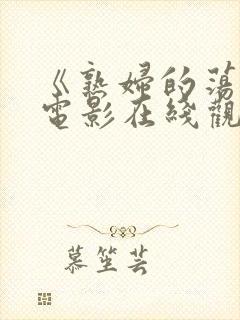 《熟婦的蕩
電影在綫觀
慕笙芸